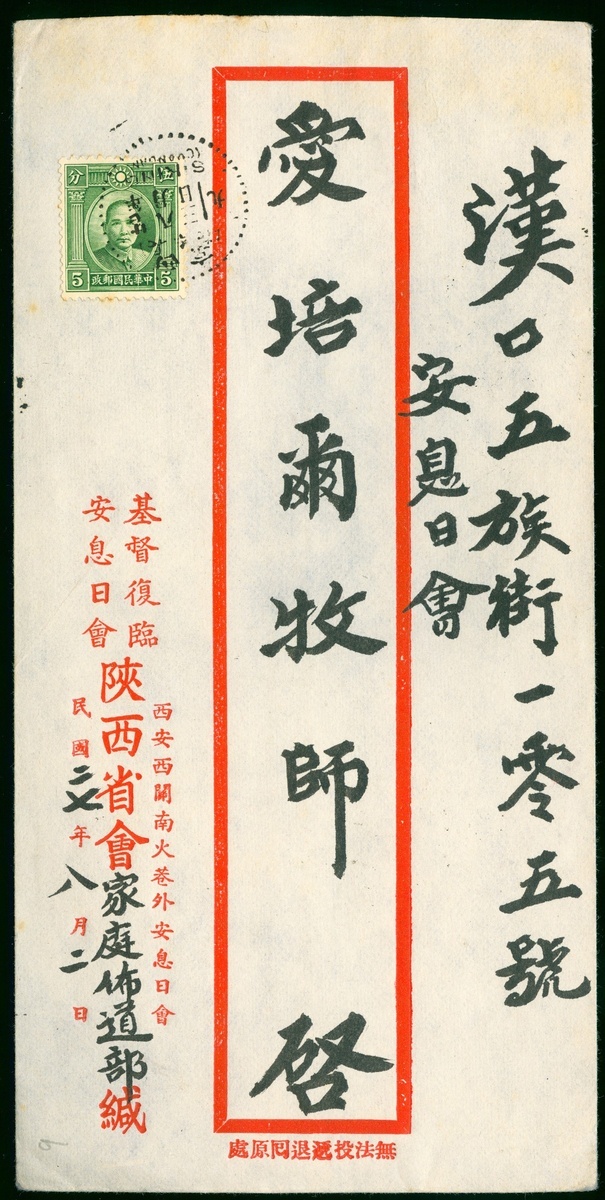 漢口五族街一零五號
安息日會
愛培爾牧師 啓
西安西關南火巷外安息日會
基督復臨
安息日會
陝西省會家庭佈道部緘
民國二七年八月二日
無法投遞退回原處
分 伍
5 5
中華民國郵政